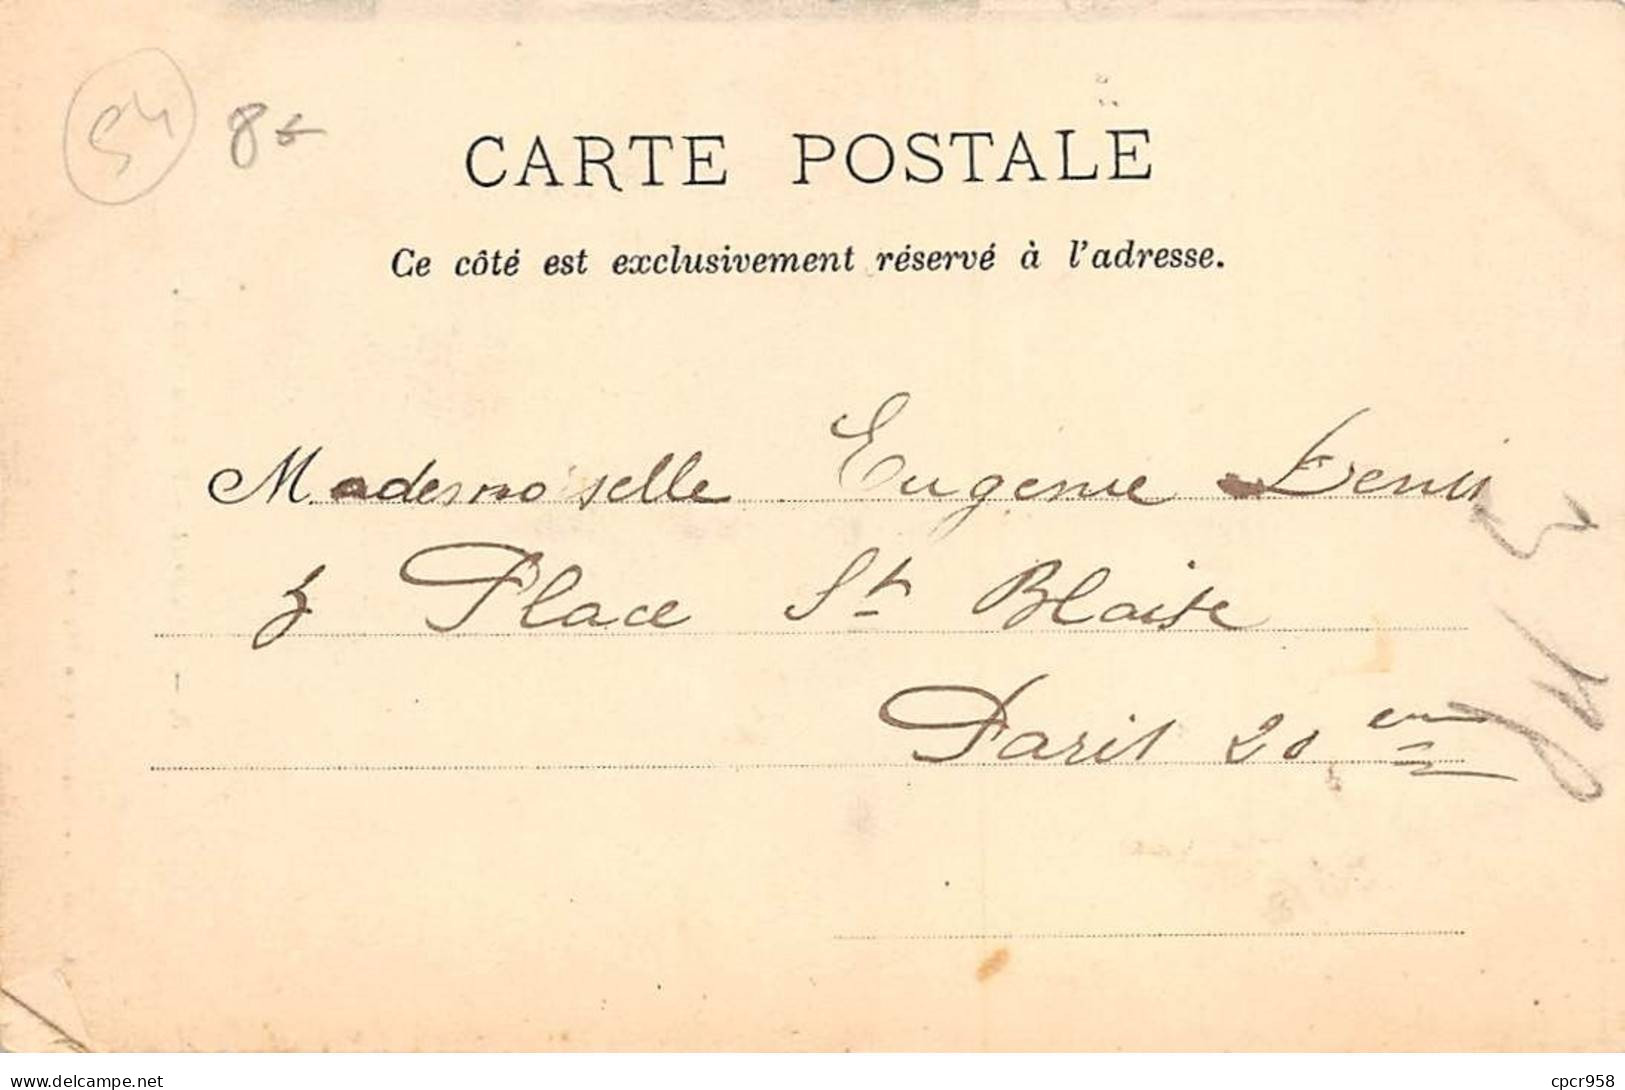 54 8
CARTE POSTALE
Ce côté est exclusivement réservé à l'adresse.
Mademoiselle Eugenie Denis
Place St Blaise
Paris 20 em
delcampe.net
cpcr958